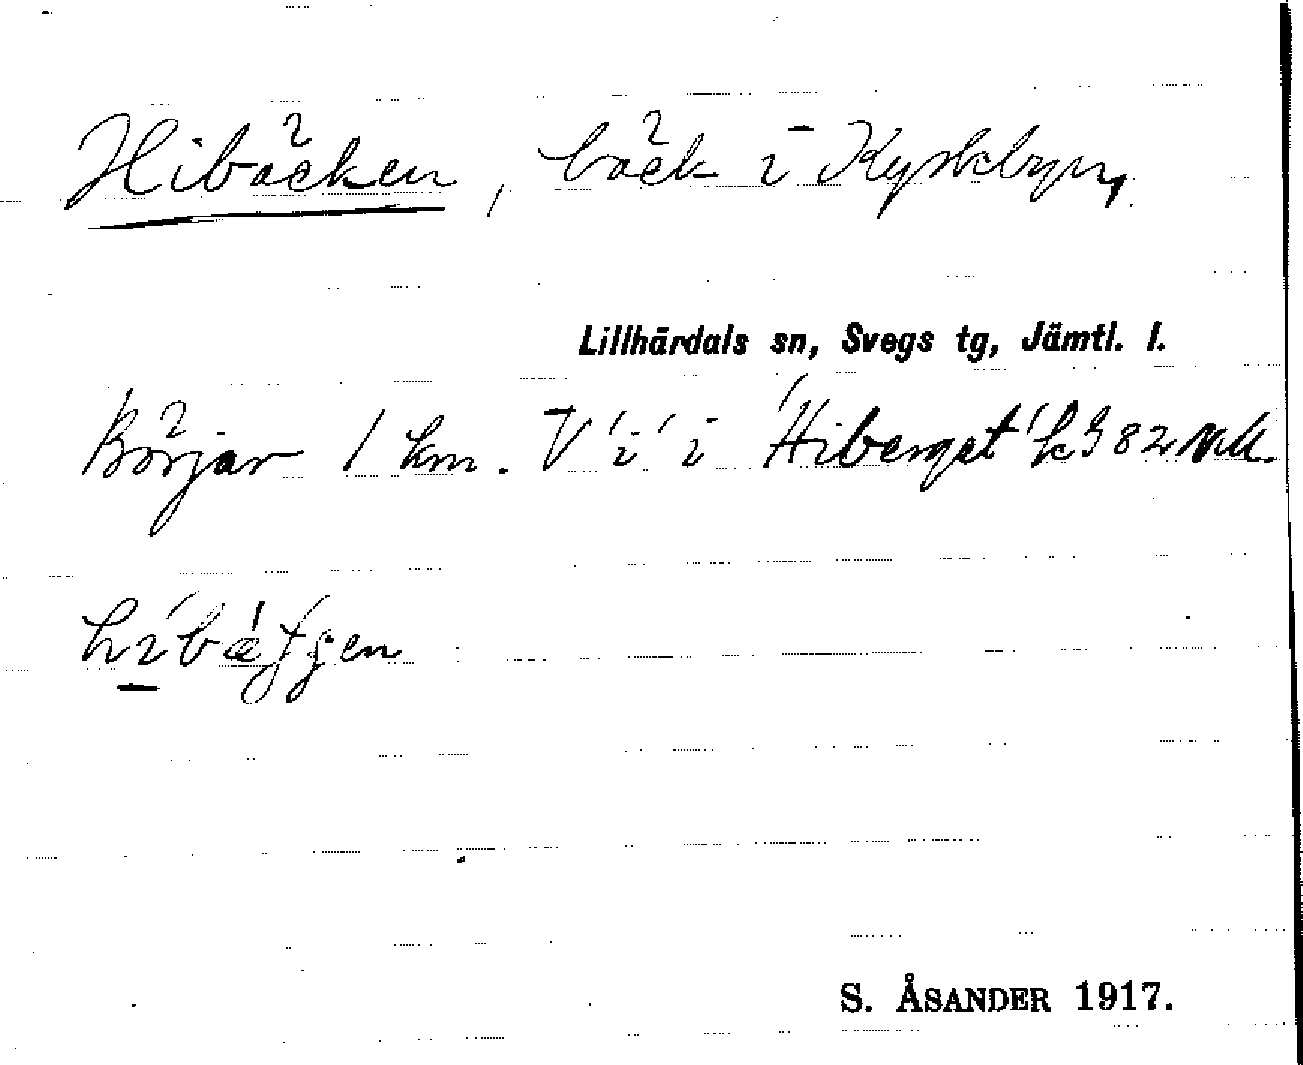 Hibäcken, bäck i Kyrkbyn,
Lillhärdals sn, Svegs tg, Jämtl. l.
Börjar 1 km. V 'i' i Hiberget
hibæ̀tjen
S. ÅSANDER 1917.